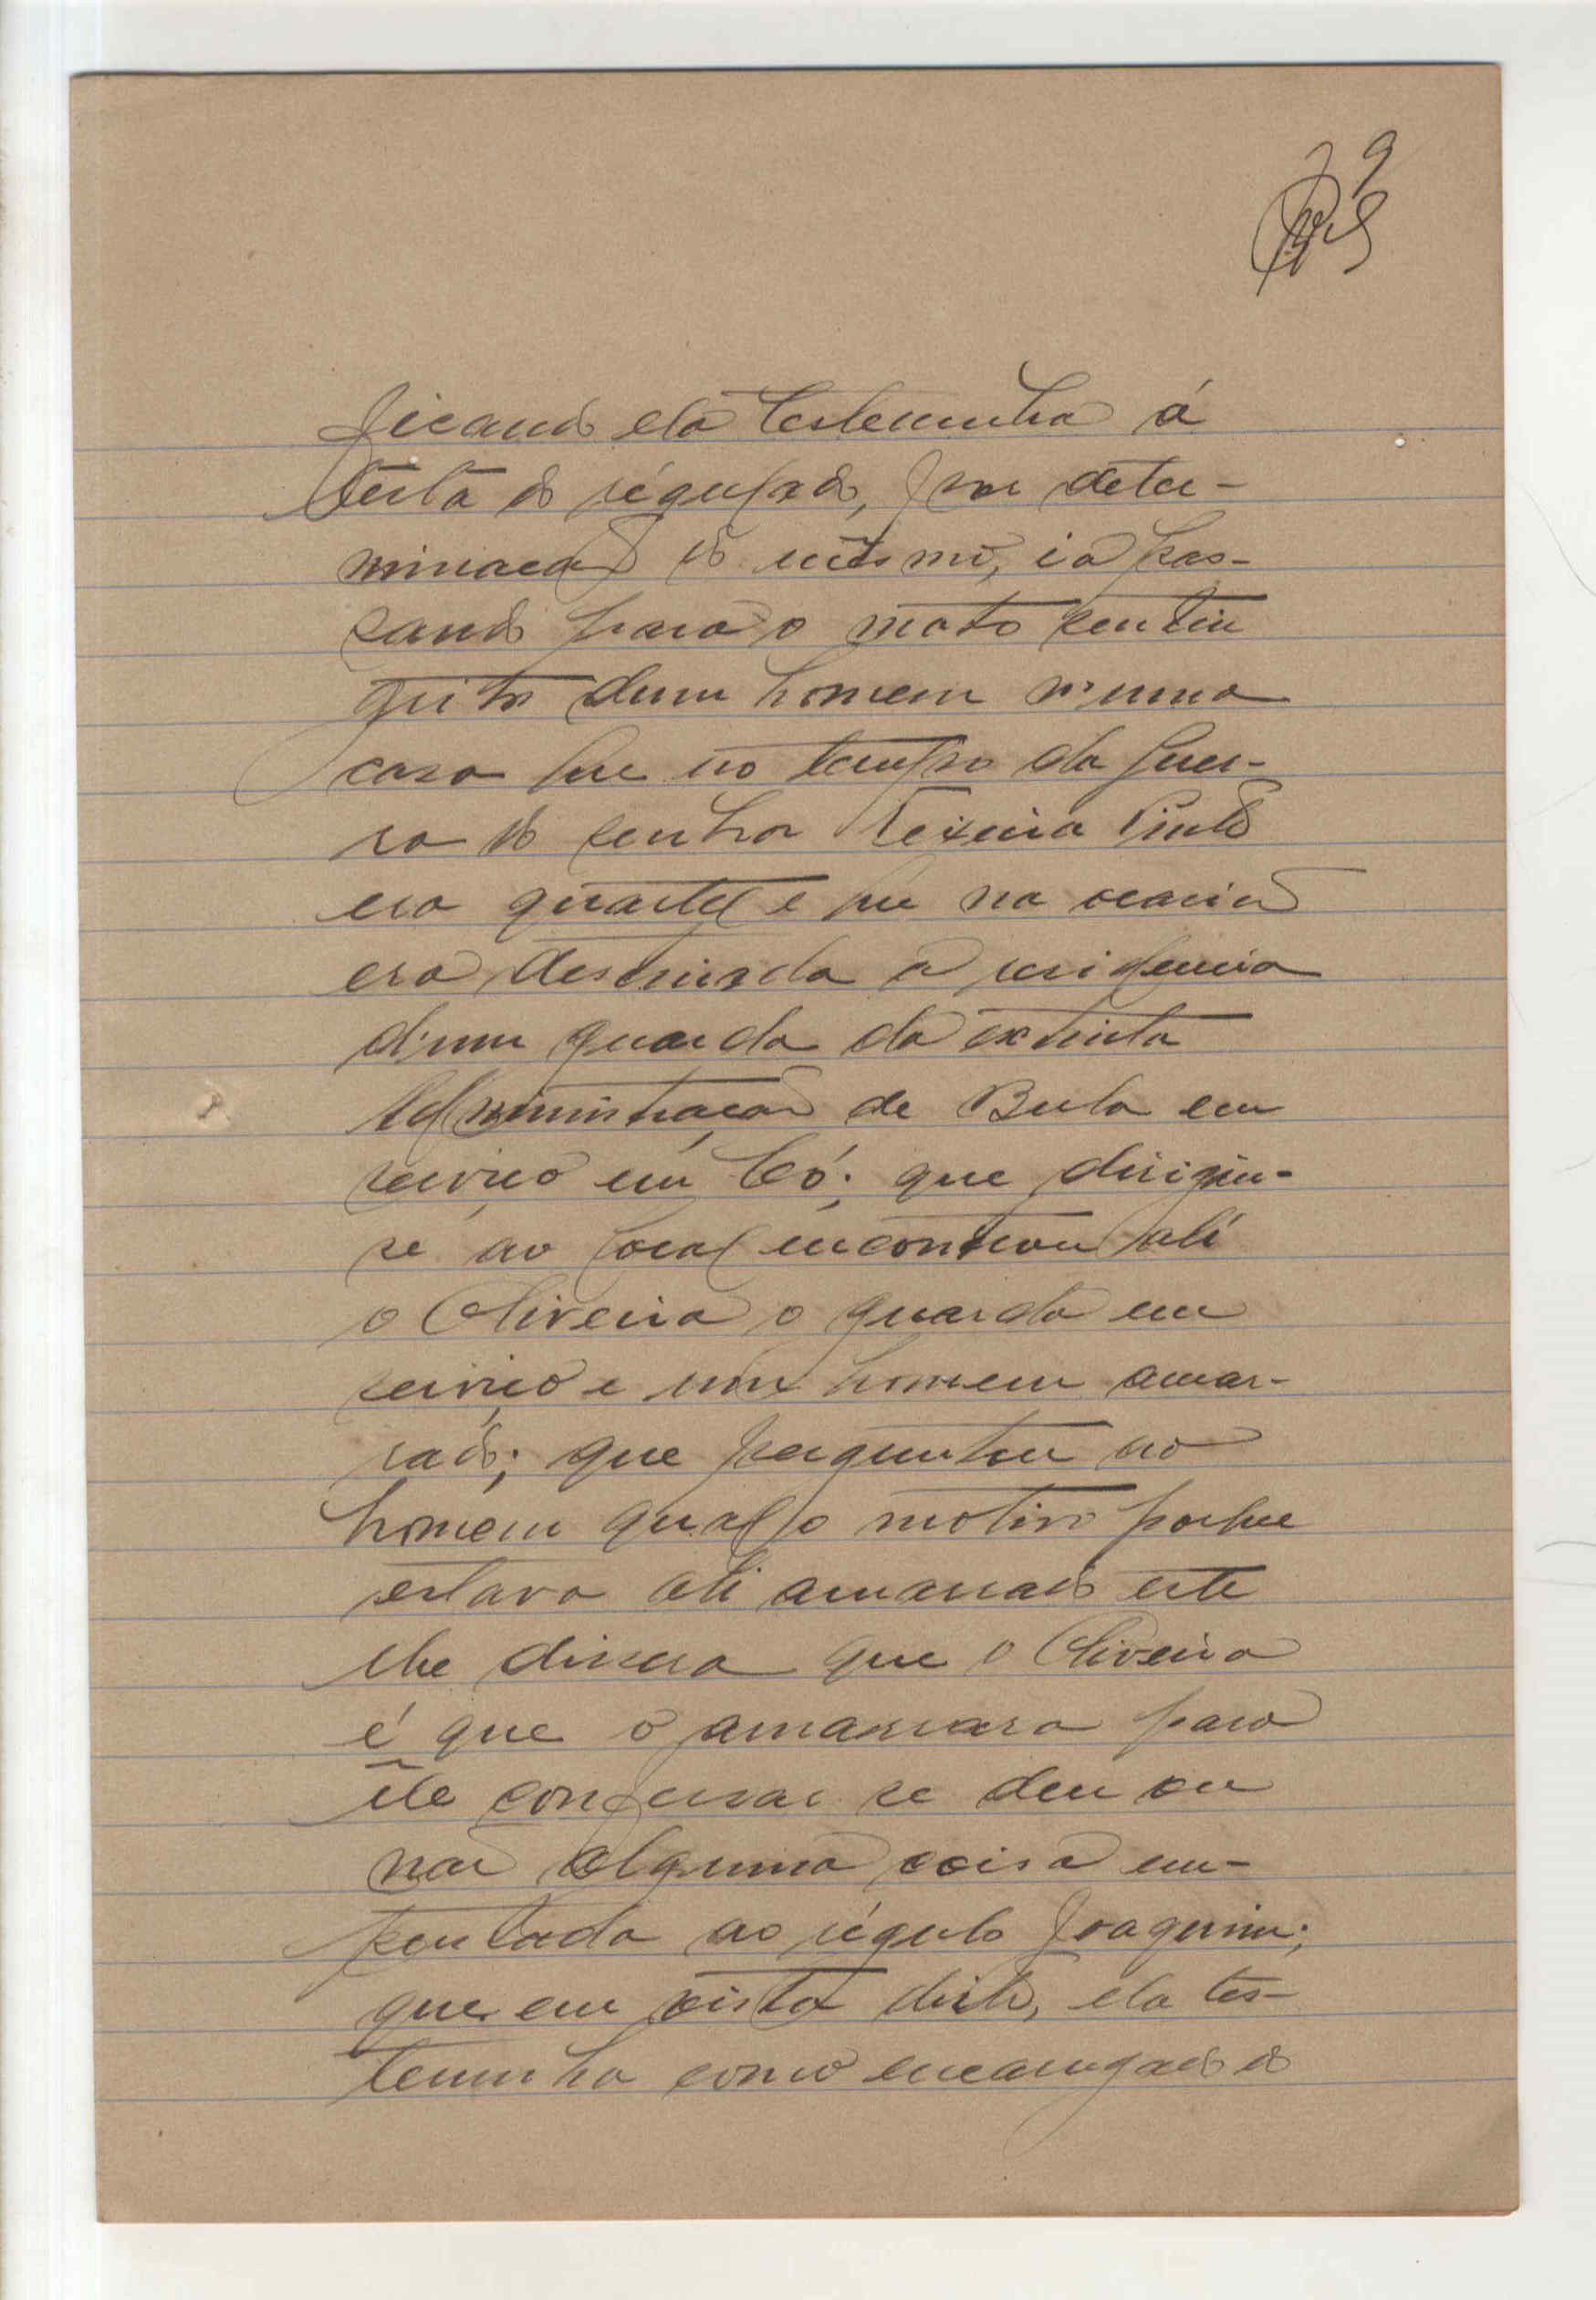 29
ficando ela testemunha á
testa do régulado, por deter-
minação do mesmo, ia pas-
sando para o mato sentiu
grito dum homem n'uma
casa que no tempo da guer-
ra do senhor Teixeira Pinto
era quartel e que na ocasião
era destinada a residencia
d'um guarda da extinta
Administração de Bula em
serviço em Có; que dirigiu-
se ao local encontrou ali
o Oliveira o guarda em
serviço e um homem amar-
rado; que perguntou ao
homem qual o motivo porque
estava ali amarrado este
lhe dissera que o Oliveira
é que o amarrara para
êle confessar se deu ou
não alguma coisa em-
prestada ao régulo Joaquim;
que em vista disto, ela tes-
temunha como encarregado do